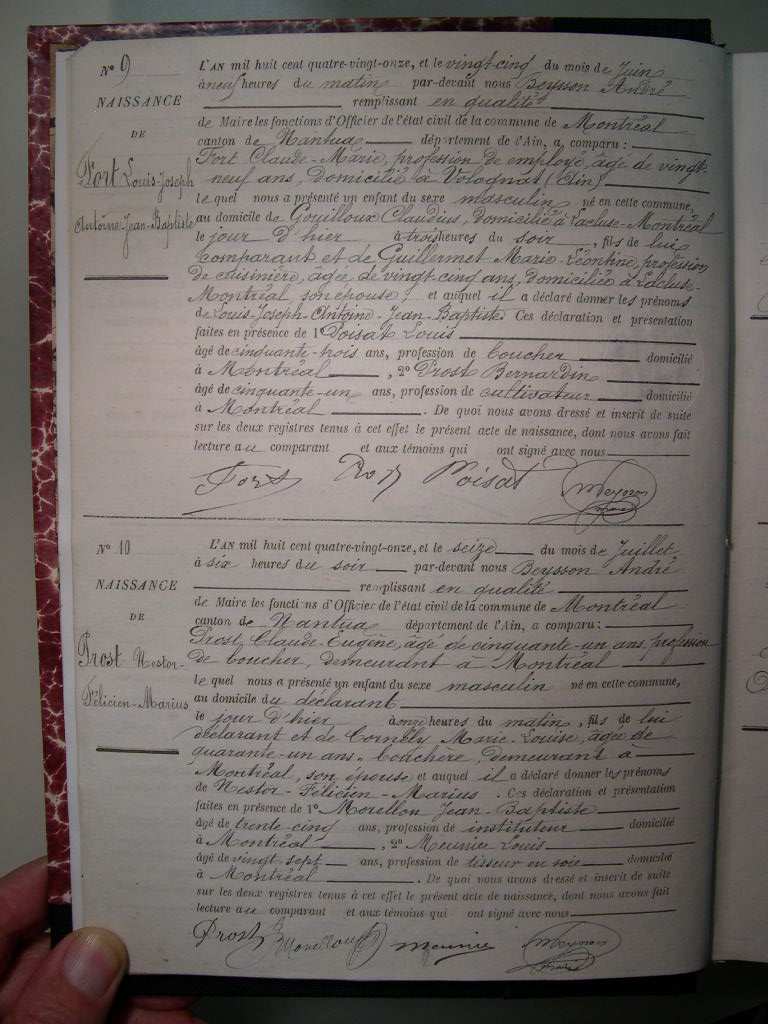 N° 9
NAISSANCE
DE
Fort Louis-Joseph
Antoine-Jean-Baptiste
L'AN mil huit cent quatre-vingt-onze, et le vingt-cinq du mois de Juin
à neuf heures du matin par-devant nous Beysson André
remplissant en qualité
de Maire les fonctions d'Officier de l'état civil de la commune de Montréal
canton de Nantua département de l'Ain, a comparu :
Fort Claude-Marie, profession de employé, âgé de vingt-
neuf ans, domicilié à Volognat (Ain)
lequel nous a présenté un enfant du sexe masculin né en cette commune,
au domicile de Gouilloux Claudius, domicilié à Lacluse-Montréal
le jour d'hier à trois heures du soir, fils de lui
comparant et de Guillermet Marie-Léontine, profession
de cuisinière, âgée de vingt-cinq ans, domiciliée à Lacluse-
Montréal, son épouse ; et auquel il a déclaré donner les prénoms
de Louis-Joseph-Antoine-Jean-Baptiste Ces déclaration et présentation
faites en présence de 1° Poisat Louis
âgé de cinquante-trois ans, profession de boucher domicilié
à Montréal, 2° Prost Bernardin
âgé de cinquante-un ans, profession de cultivateur domicilié
à Montréal. De quoi nous avons dressé et inscrit de suite
sur les deux registres tenus à cet effet le présent acte de naissance, dont nous avons fait
lecture au comparant et aux témoins qui ont signé avec nous
Fort Poisat
N° 10
NAISSANCE
DE
Prost Nestor-
Félicien-Marius
L'AN mil huit cent quatre-vingt-onze, et le seize du mois de Juillet
à six heures du soir par-devant nous Beysson André
remplissant en qualité
de Maire les fonctions d'Officier de l'état civil de la commune de Montréal
canton de Nantua département de l'Ain, a comparu :
Prost Claude-Eugène, âgé de cinquante-un ans, profession
de boucher, demeurant à Montréal
lequel nous a présenté un enfant du sexe masculin né en cette commune,
au domicile du déclarant
le jour d'hier à onze heures du matin, fils de lui
déclarant et de Cornély Marie-Louise, âgée de
quarante-un ans, bouchère, demeurant à
Montréal, son épouse et auquel il a déclaré donner les prénoms
de Nestor-Félicien-Marius. Ces déclaration et présentation
faites en présence de 1° Morellon Jean-Baptiste
âgé de trente-cinq ans, profession de instituteur domicilié
à Montréal, 2° Meunier Louis
âgé de vingt-sept ans, profession de tisseur en soie domicilié
à Montréal. De quoi nous avons dressé et inscrit de suite
sur les deux registres tenus à cet effet le présent acte de naissance, dont nous avons fait
lecture au comparant et aux témoins qui ont signé avec nous
Prost Morellon meunier